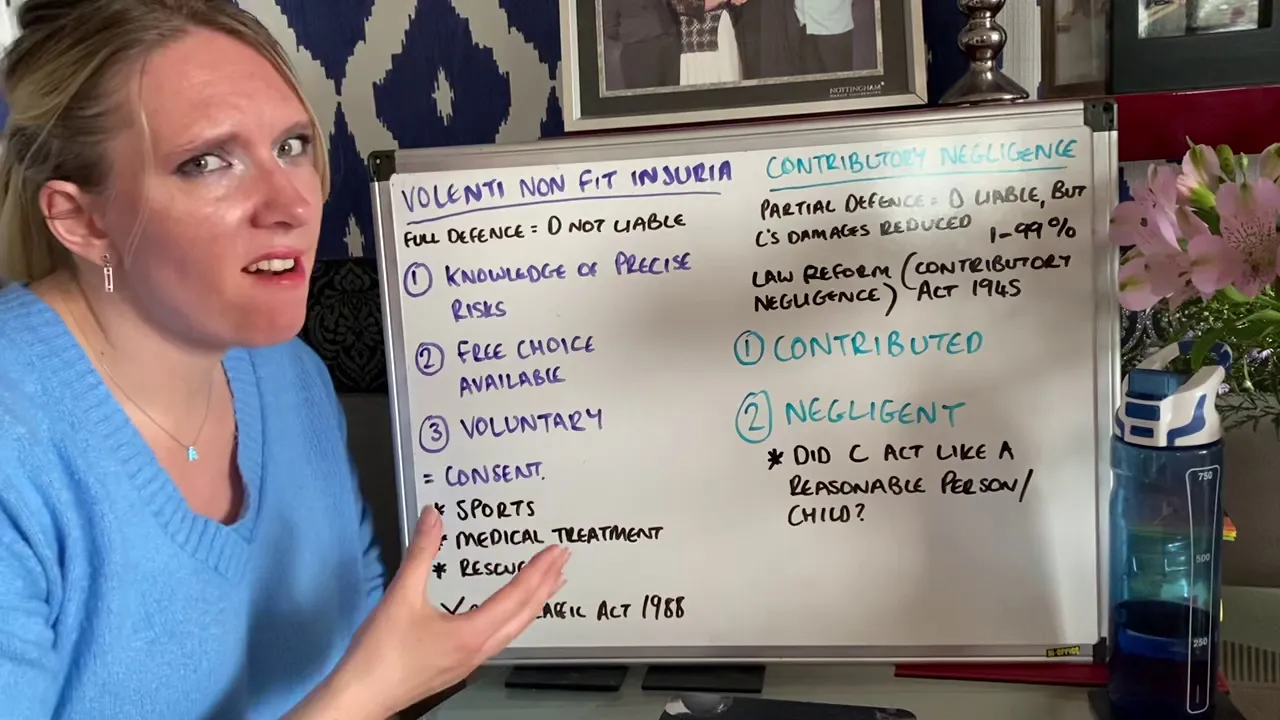 NOTTINGHAM
VOLENTI NON FIT INJURIA
FULL DEFENCE = D NOT LIABLE
① KNOWLEDGE OF PRECISE
RISKS
② FREE CHOICE
AVAILABLE
③ VOLUNTARY
= CONSENT.
* SPORTS
* MEDICAL TREATMENT
*
ACT 1988
CONTRIBUTORY NEGLIGENCE
PARTIAL DEFENCE = D LIABLE, BUT
C'S DAMAGES REDUCED 1-99%
LAW REFORM (CONTRIBUTORY
NEGLIGENCE) ACT 1945
① CONTRIBUTED
② NEGLIGENT
* DID C ACT LIKE A
REASONABLE PERSON/
CHILD?
BI-OFFICE
750
500
250